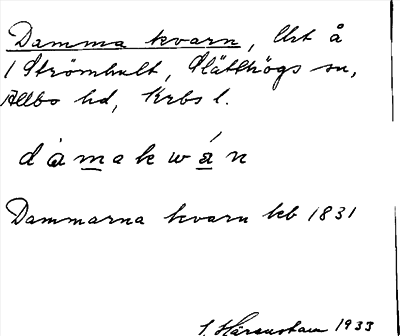 Damma kvarn, Urt å
1 Strömhult, Slätthögs sn,
Allbo hd, Krbs l.
dàmakwán
Dammarna kvarn kb 1831
1933